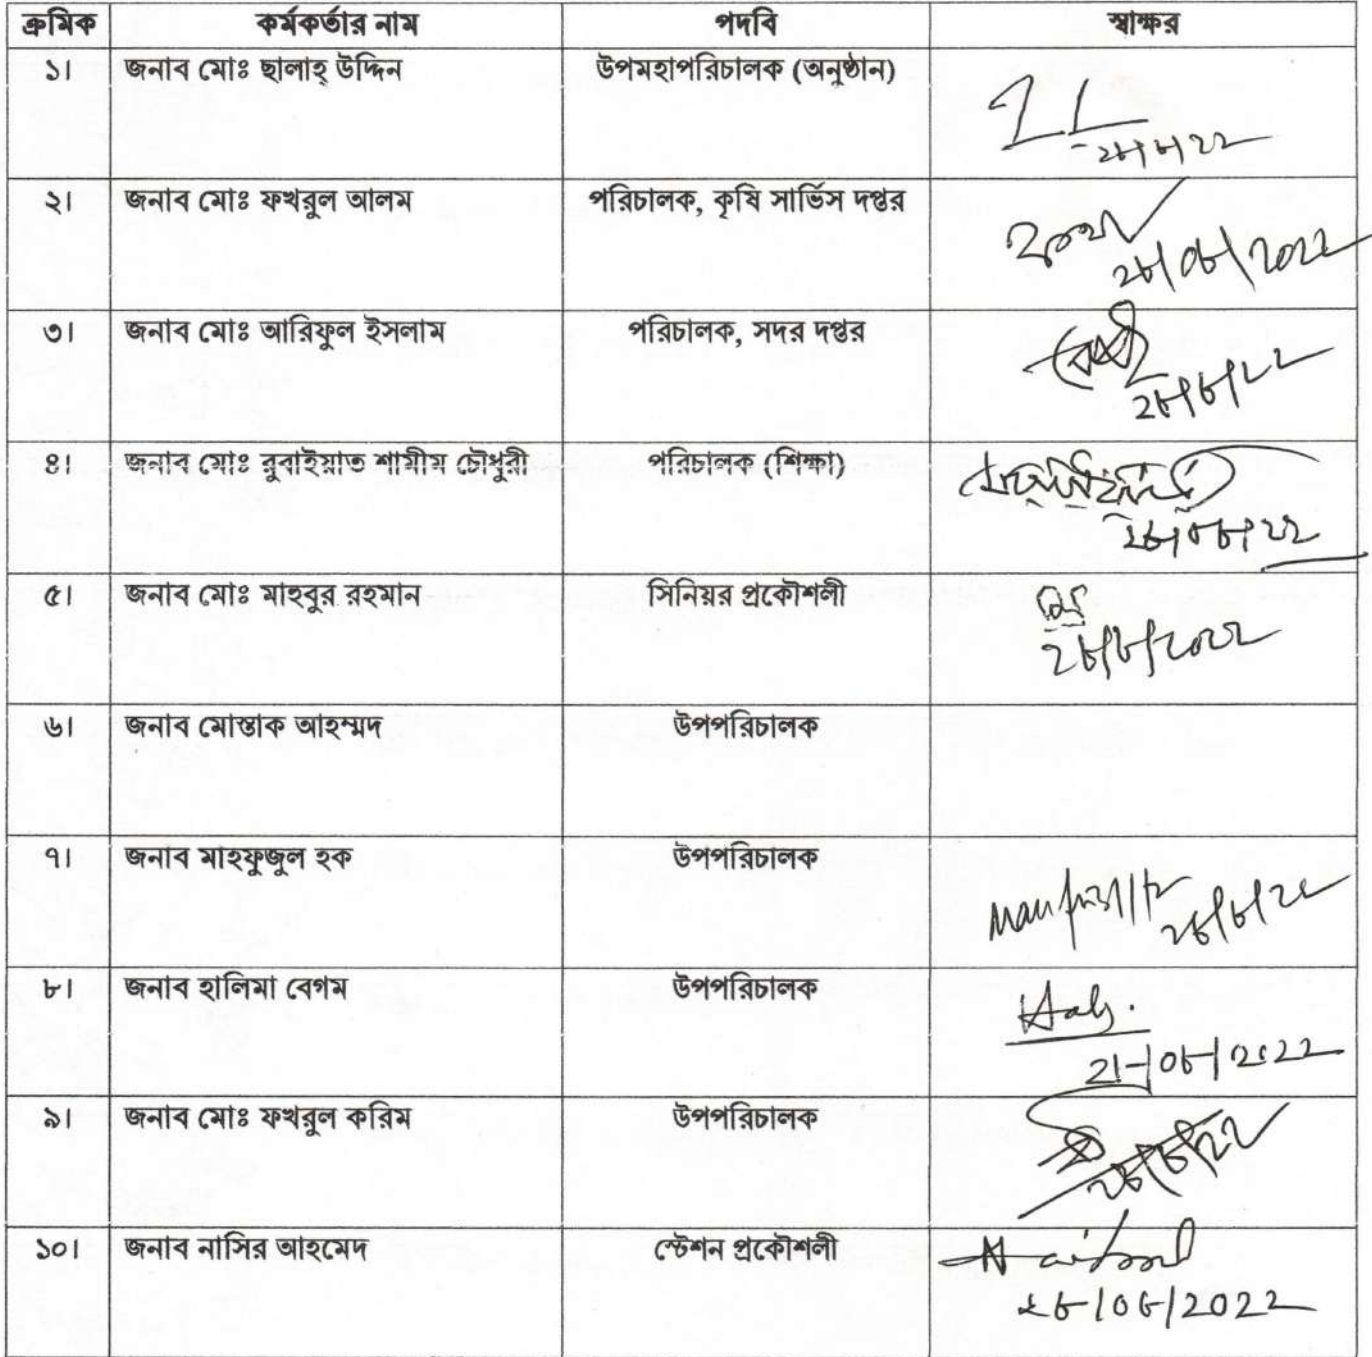 ক্রমিক কর্মকর্তার নাম পদবি স্বাক্ষর
১। জনাব মোঃ ছালাহ্ উদ্দিন উপমহাপরিচালক (অনুষ্ঠান)
২৮/৮/২২
২। জনাব মোঃ ফখরুল আলম পরিচালক, কৃষি সার্ভিস দপ্তর
২৮/০৮/২০২২
৩। জনাব মোঃ আরিফুল ইসলাম পরিচালক, সদর দপ্তর
২৮/৮/২২
৪। জনাব মোঃ রুবাইয়াত শামীম চৌধুরী পরিচালক (শিক্ষা)
২৮/০৮/২২
৫। জনাব মোঃ মাহবুর রহমান সিনিয়র প্রকৌশলী
২৮/৮/২০২২
৬। জনাব মোস্তাক আহম্মদ উপপরিচালক
৭। জনাব মাহফুজুল হক উপপরিচালক
২৮/৮/২২
৮। জনাব হালিমা বেগম উপপরিচালক
৯। জনাব মোঃ ফখরুল করিম উপপরিচালক
২৮/৮/২২
১০। জনাব নাসির আহমেদ স্টেশন প্রকৌশলী
২৮/০৮/২০২২